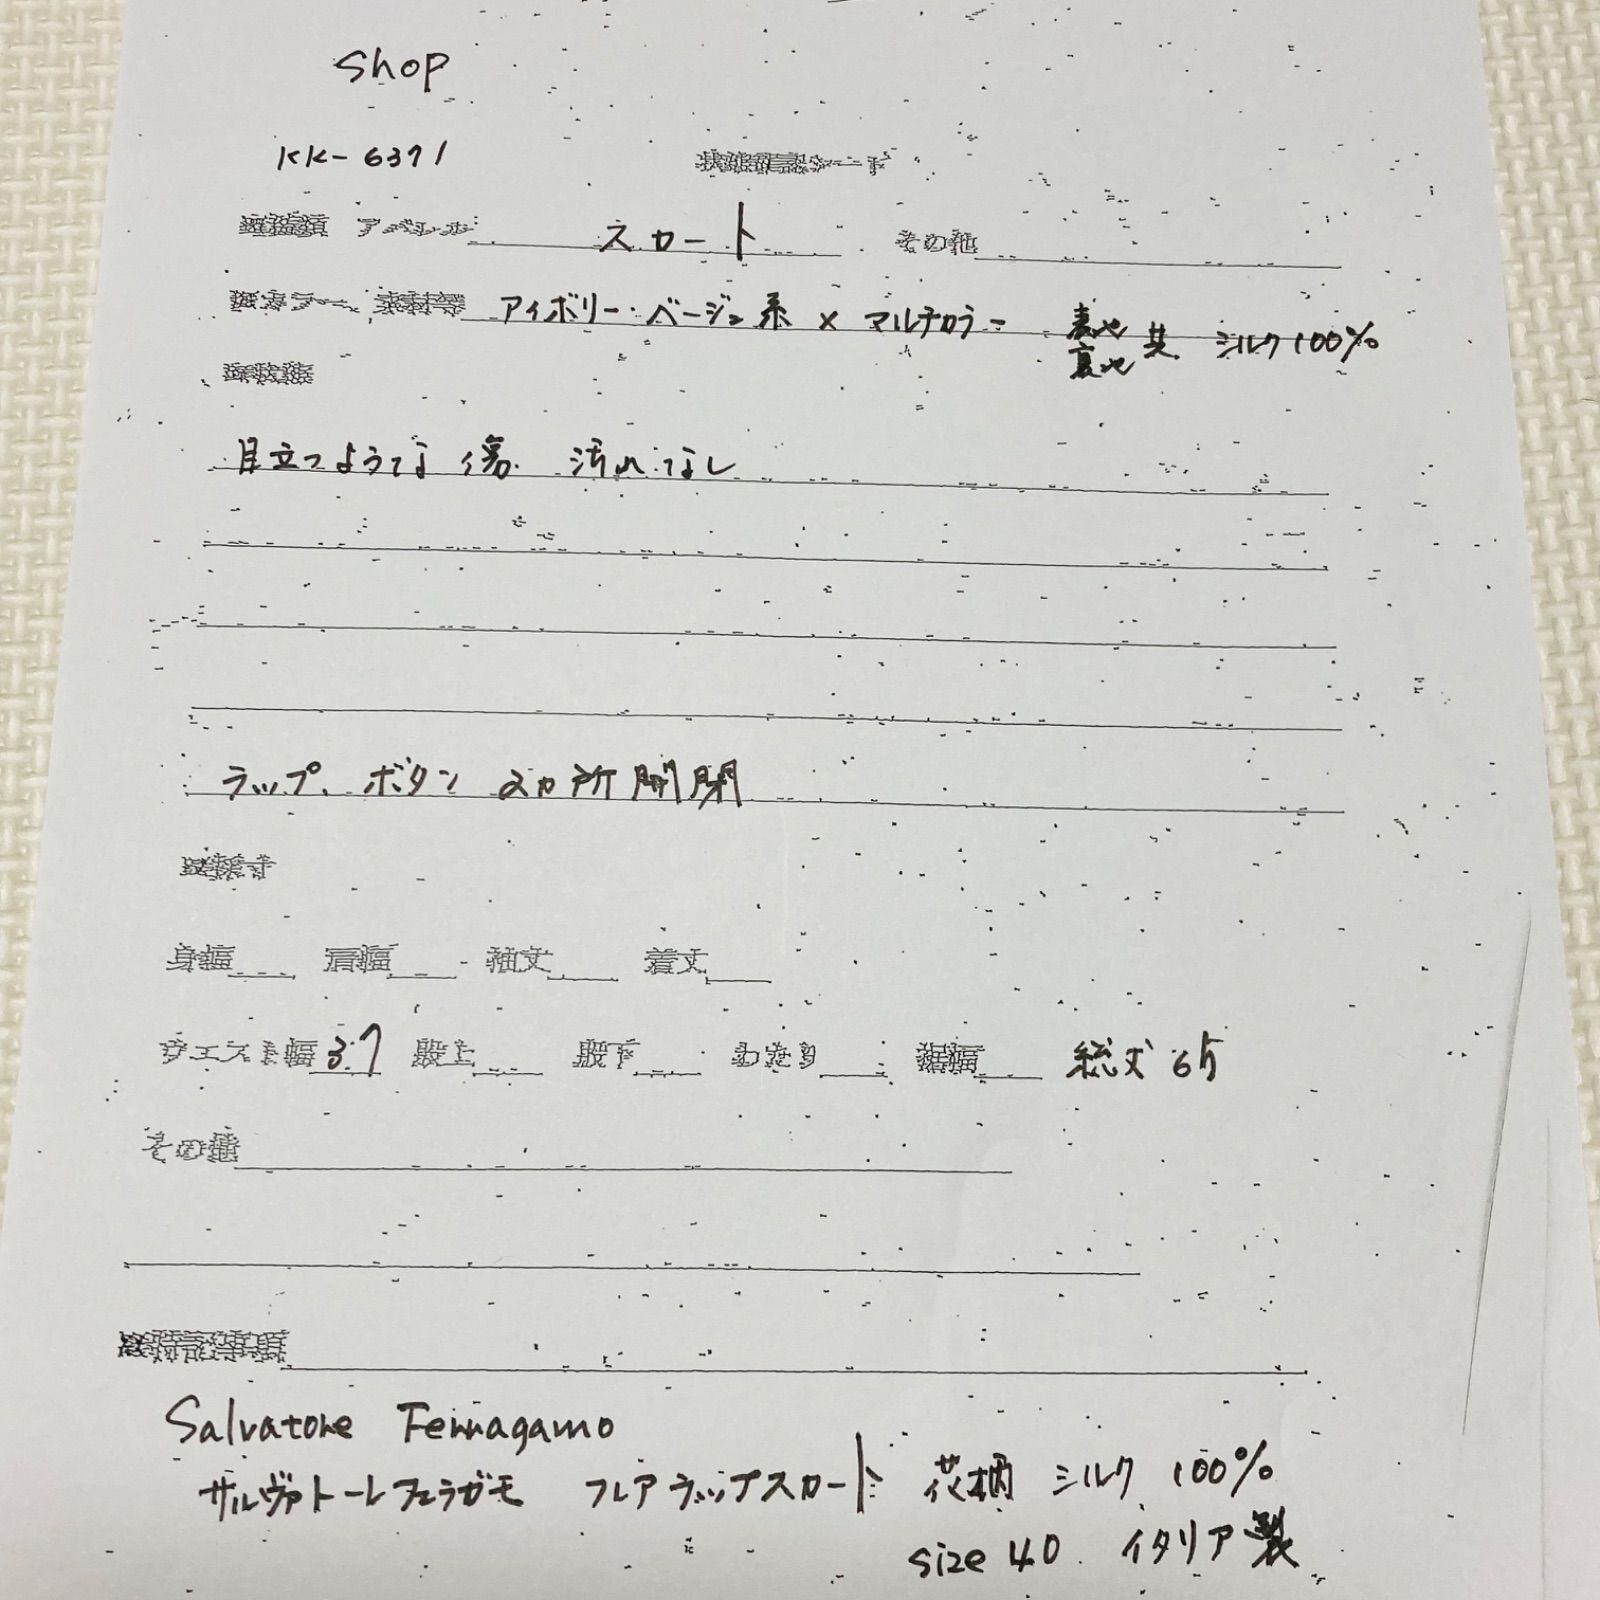 shop
KK-6371
アパレル スカート その他
カラー 素材等 アイボリー・ベージュ系 × マルチカラー 表地 裏地 共 シルク100%
目立つような傷、汚れなし
ラップ、ボタン2カ所開閉
採寸
身幅 肩幅 袖丈 着丈
ウエスト幅 37 股上 股下 わたり 裾幅 総丈 65
その他
特記事項
Salvatore Ferragamo
サルヴァトーレフェラガモ フレアラップスカート 花柄 シルク 100%
size 40 イタリア製